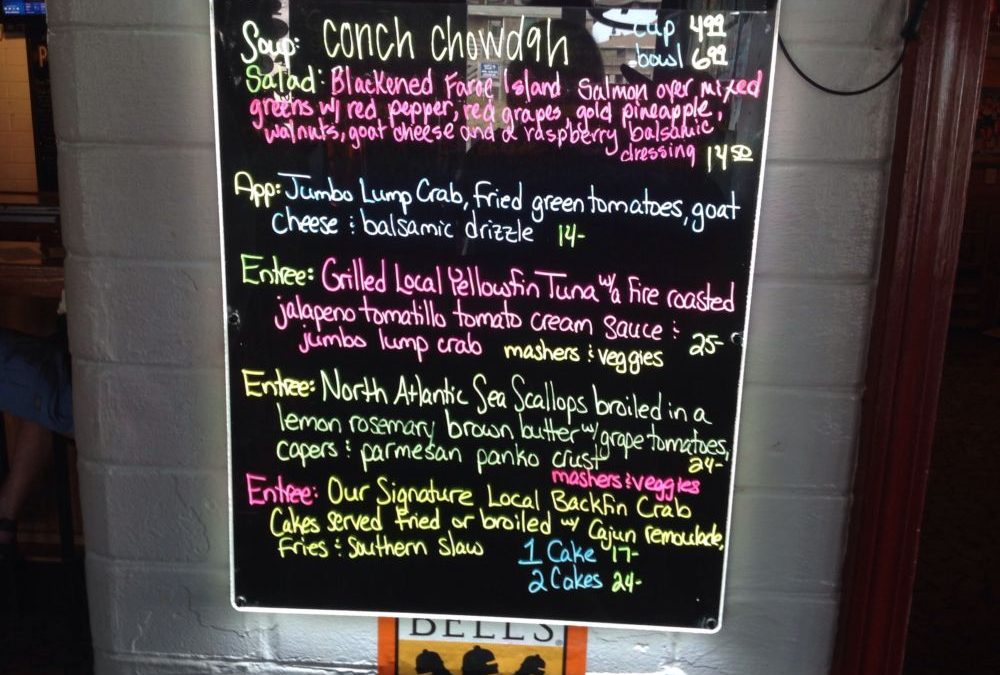 Soup: Conch Chowdah cup 4.99
bowl 6.99
Salad: Blackened Faroe Island Salmon over mixed
greens w/ red pepper, red grapes, gold pineapple,
walnuts, goat cheese and a raspberry balsamic
dressing 14.50
App: Jumbo Lump Crab, fried green tomatoes, goat
cheese & balsamic drizzle 14-
Entree: Grilled Local Yellowfin Tuna w/ a fire roasted
jalapeno tomatillo tomato cream sauce &
jumbo lump crab mashers & veggies 25-
Entree: North Atlantic Sea Scallops broiled in a
lemon rosemary brown butter w/ grape tomatoes,
capers & parmesan panko crust 24-
mashers & veggies
Entree: Our Signature Local Backfin Crab
Cakes served fried or broiled w/ Cajun remoulade,
Fries & Southern Slaw 1 Cake 17-
2 Cakes 24-
BELLS